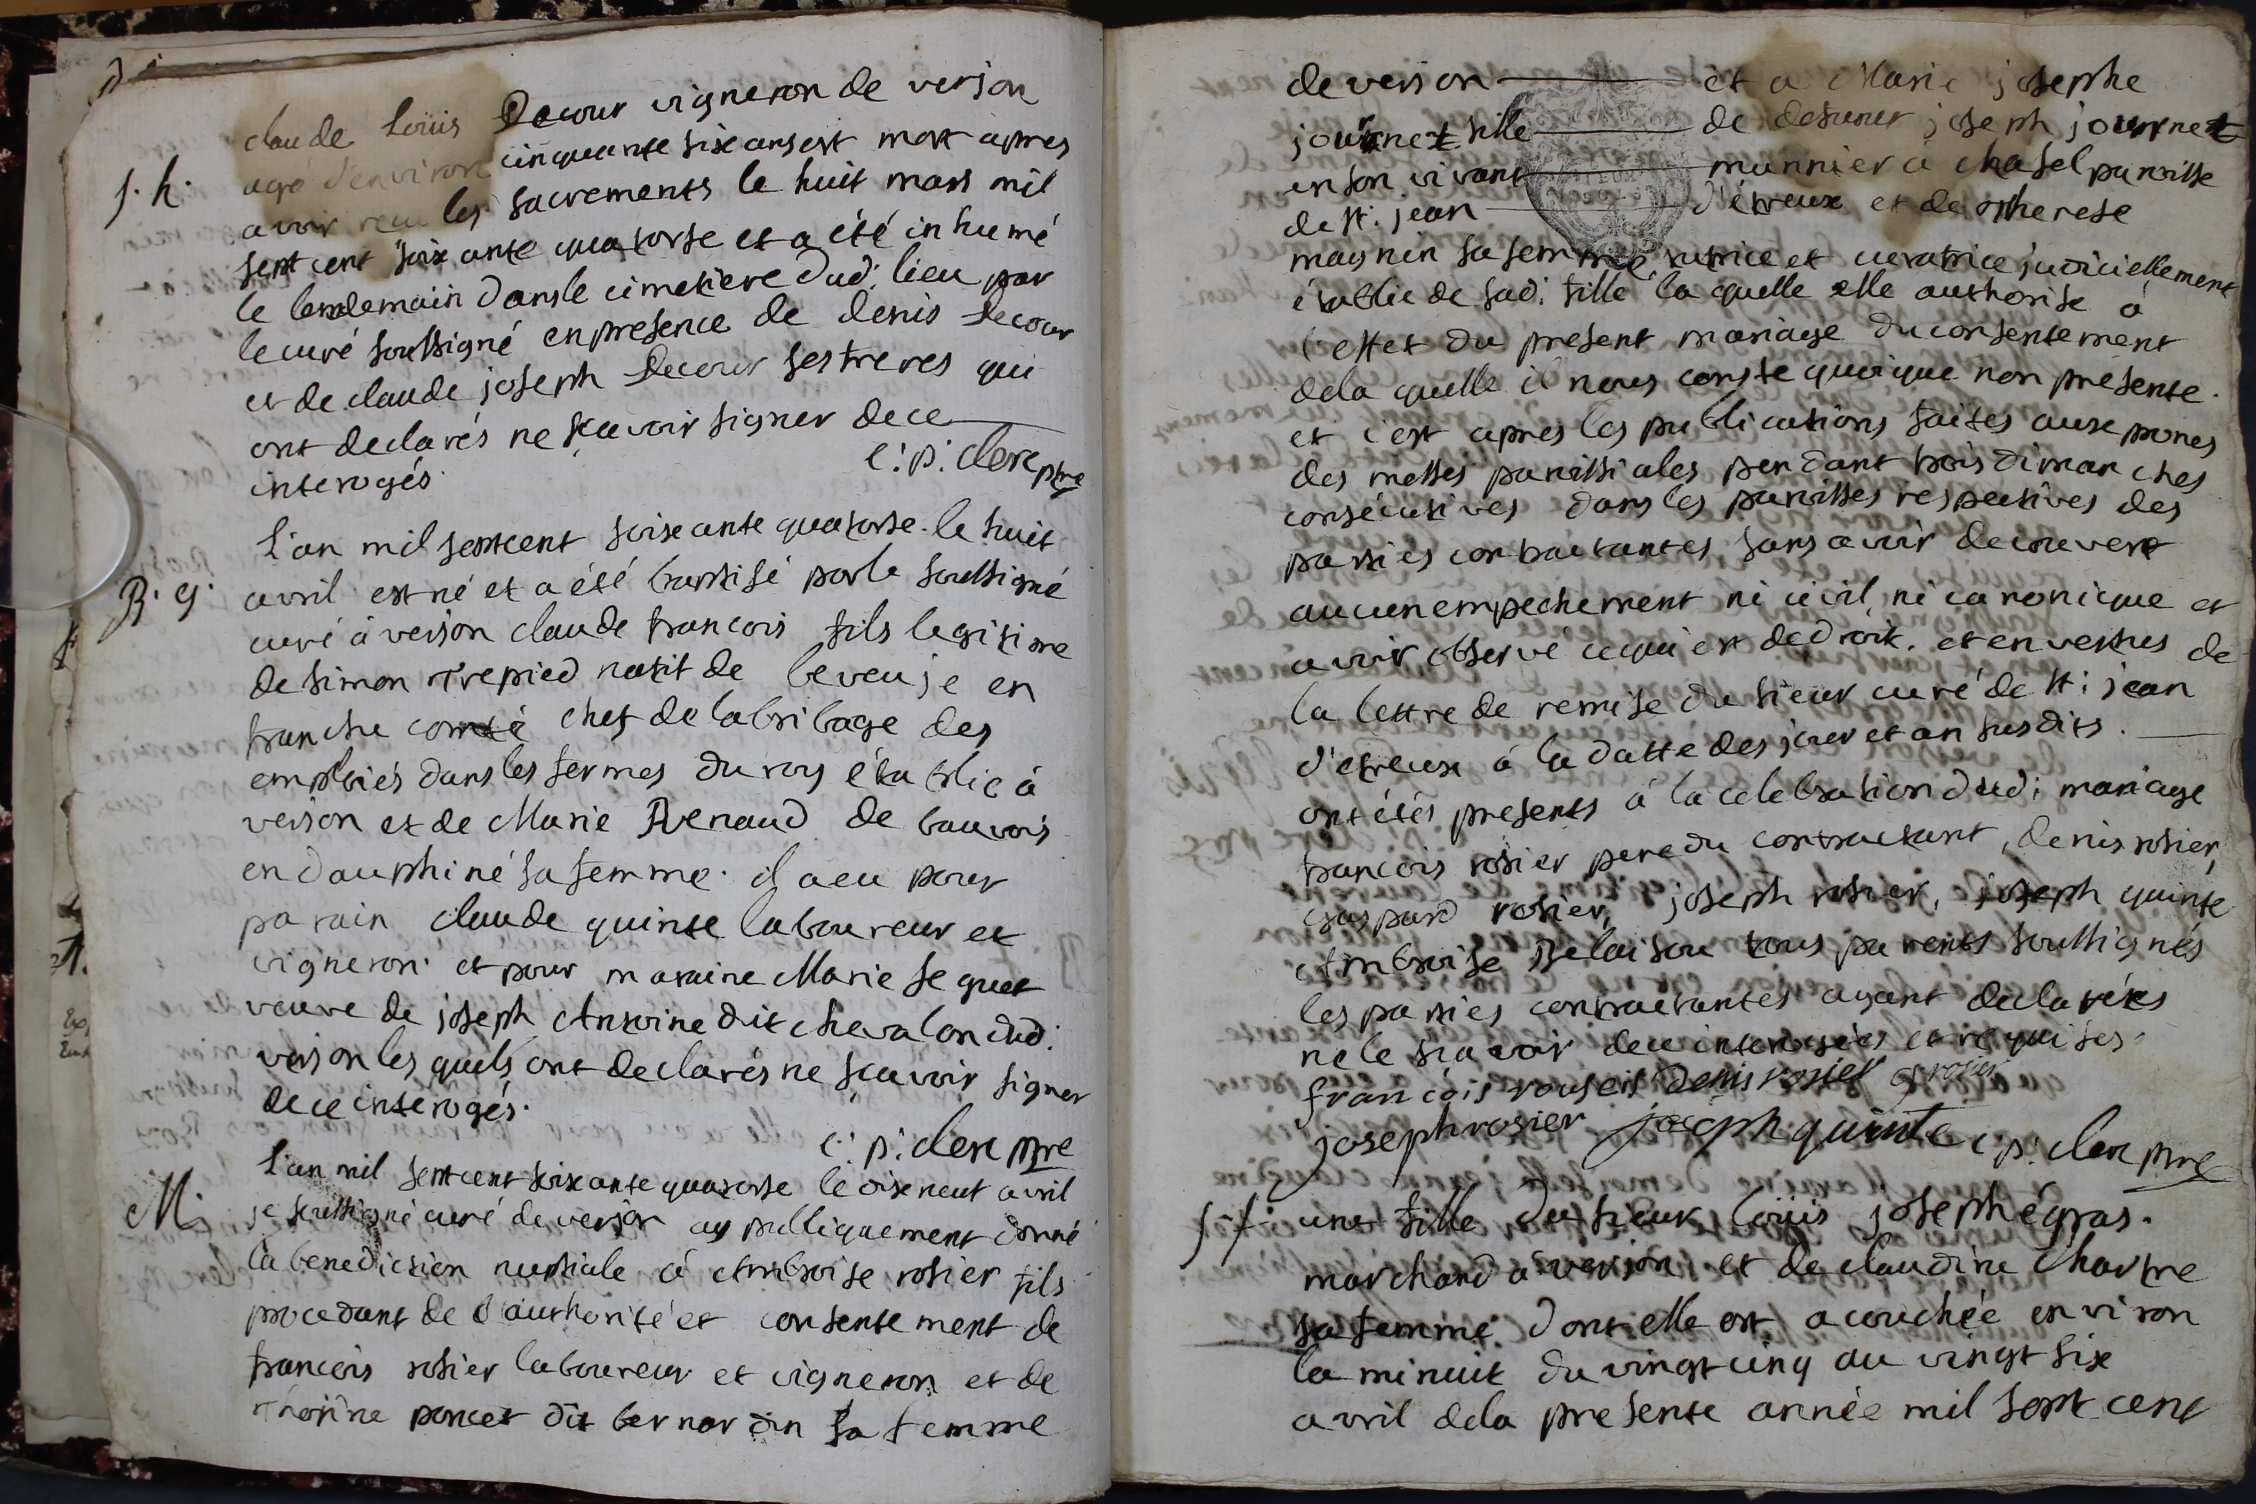 claude Loüis Decour vigneron de verson
S. h. agé d'environ cinquante six ans est mort apres
avoir recu les sacrements le huit mars mil
sept cent soixante quatorse et a été inhumé
le lendemain dans le cimetiere dud: lieu par
le curé soussigné en presence de denis Decour
et de claude joseph Decour ses freres qui
ont declarés ne sçavoir signer de ce
interogés.
c: p: clerc ptre
L'an mil sept cent soixante quatorse le huit
B. g. avril est né et a été baptisé par le soussigné
curé à verson claude francois fils legitime
de simon trepied natif de leveuje en
franche comté chef de la bribage des
emploiés dans les fermes du roy établie à
verson et de Marie Renaud de bauvois
en dauphiné sa femme. il a eu pour
parain claude quinte laboureur et
vigneron et pour maraine Marie Seguet
veuve de joseph Antoine dit chevalon dud:
verson les quels ont declarés ne sçavoir signer
de ce interogés.
c: p: clerc ptre
L'an mil sept cent soixante quatorse le dix neuf avril
M. je soussigné curé de verson ay publiquement donné
la benediction nuptiale à Ambroise rosier fils
procedant de l'authorité et consentement de
francois rosier laboureur et vigneron et de
poncet dit bernardin sa femme
de verson et a Marie josephe
journet fille de defunct joseph journet
en son vivant munnier à chasel paroisse
de st. jean d'étreux et de therese
maynin sa femme tutrice et curatrice judiciellement
établie de sad: fille la quelle elle authorise à
l'effet du present mariage du consentement
de la quelle il nous conste quoique non présente.
et c'est apres les publications faites aux prones
des messes paroissiales pendant trois dimanches
consécutives dans les paroisses respectives des
parties contractantes sans avoir decouvert
aucun empechement ni civil, ni canonicque et
avoir observé ce qui est de droit. et en vertus de
la lettre de remise du sieur curé de st: jean
d'etreux à la datte des jour et an susdits.
ont étés presents à la celebration dud: mariage
francois rosier pere du contractant, denis rosier,
gaspard rosier, joseph rosier, joseph quinte
Ambroise Belaisou tous parents soussignés
les parties contractantes ayant declarées
ne le sçavoir de ce interogées et requises.
francois rouseis denis rosier g rosier
joseph rosier joseph quinte c: p: clerc ptre
S. f. une fille du sieur loüis joseph égras.
marchand a verson et de claudine Chartre
sa femme dont elle est acouchée environ
la minuit du vingt cinq au vingt six
avril de la presente année mil sept cent